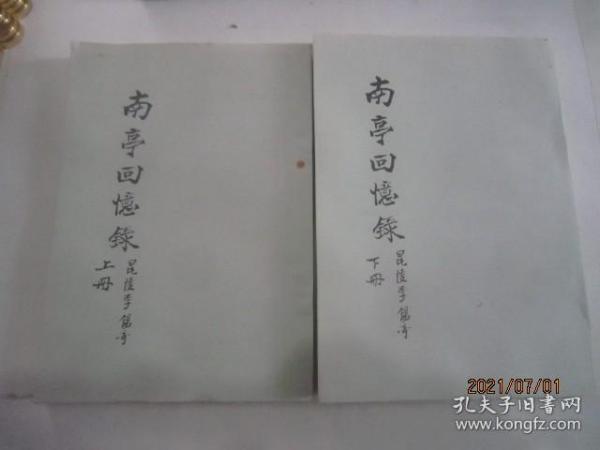 南亭回憶錄
上冊
昆陵李
南亭回憶錄
下冊
昆陵李
2021/07/01
孔夫子旧書网
www.kongfz.com